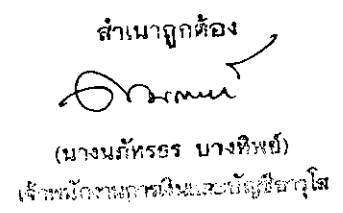 สำเนาถูกต้อง
(นางนภัทรธร บางทิพย์)
เจ้าพนักงานการเงินและบัญชีอาวุโส